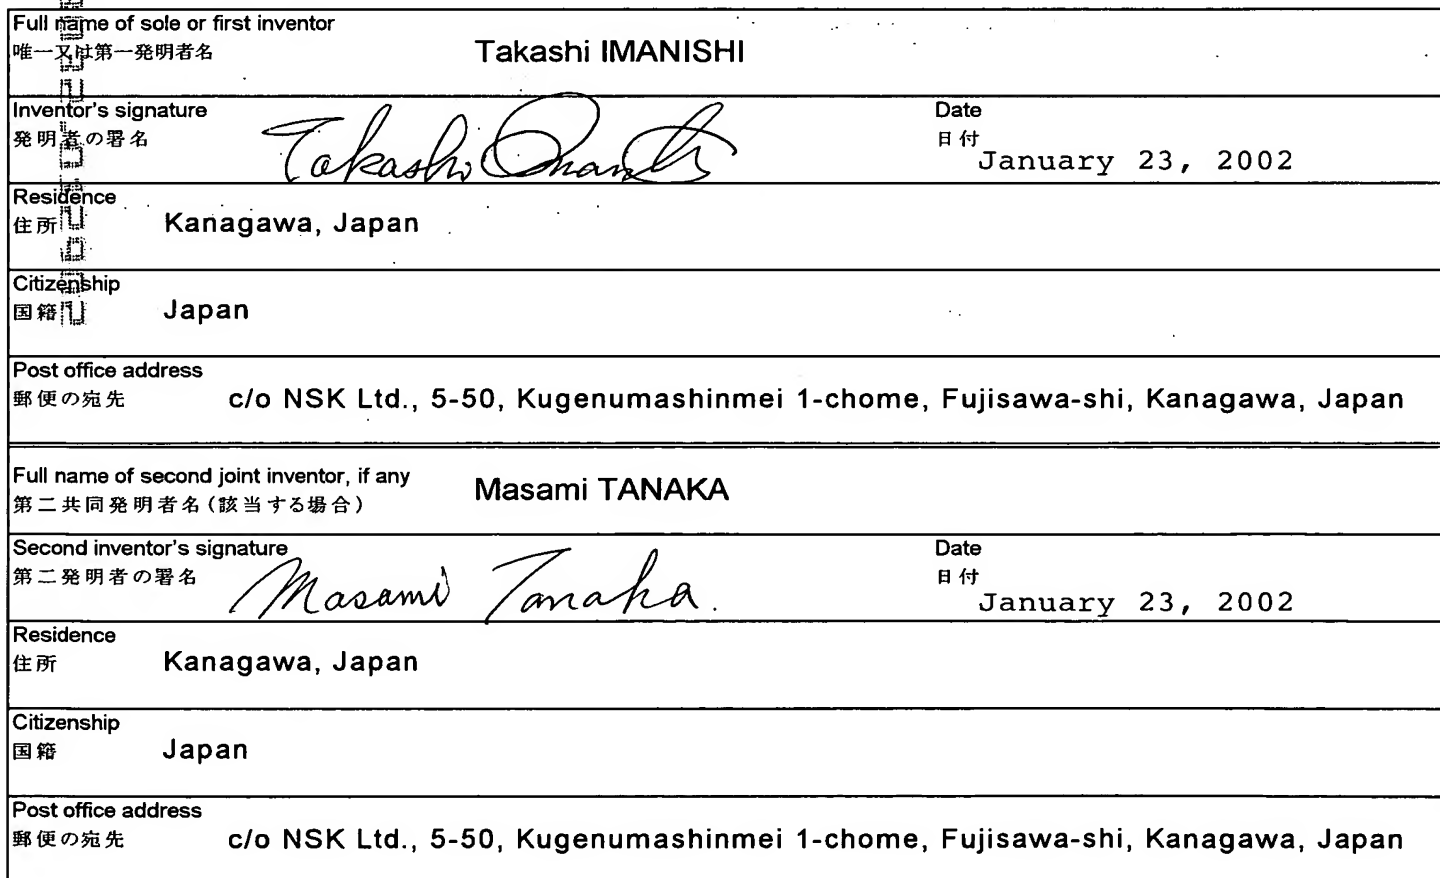 Full name of sole or first inventor
唯一又は第一発明者名 Takashi IMANISHI
Inventor's signature
発明者の署名 Takashi Imanishi
Date
日付 January 23, 2002
Residence
住所 Kanagawa, Japan
Citizenship
国籍 Japan
Post office address
郵便の宛先 c/o NSK Ltd., 5-50, Kugenumashinmei 1-chome, Fujisawa-shi, Kanagawa, Japan
Full name of second joint inventor, if any
第二共同発明者名(該当する場合) Masami TANAKA
Second inventor's signature
第二発明者の署名 Masami Tanaka.
Date
日付 January 23, 2002
Residence
住所 Kanagawa, Japan
Citizenship
国籍 Japan
Post office address
郵便の宛先 c/o NSK Ltd., 5-50, Kugenumashinmei 1-chome, Fujisawa-shi, Kanagawa, Japan